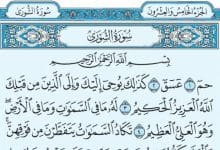 سُورَةُ الشُّورَىٰ
الجُزْءُ الخَامِسُ وَالعِشْرُونَ
سُورَةُ الشُّورَىٰ
بِسْمِ اللَّهِ الرَّحْمَٰنِ الرَّحِيمِ
حمٓ ١ عٓسٓقٓ ٢ كَذَٰلِكَ يُوحِىٓ إِلَيْكَ وَإِلَى الَّذِينَ مِن قَبْلِكَ
اللَّهُ الْعَزِيزُ الْحَكِيمُ ٣ لَهُۥ مَا فِى السَّمَٰوَٰتِ وَمَا فِى الْأَرْضِ
وَهُوَ الْعَلِىُّ الْعَظِيمُ ٤ تَكَادُ السَّمَٰوَٰتُ يَتَفَطَّرْنَ مِن فَوْقِهِنَّ